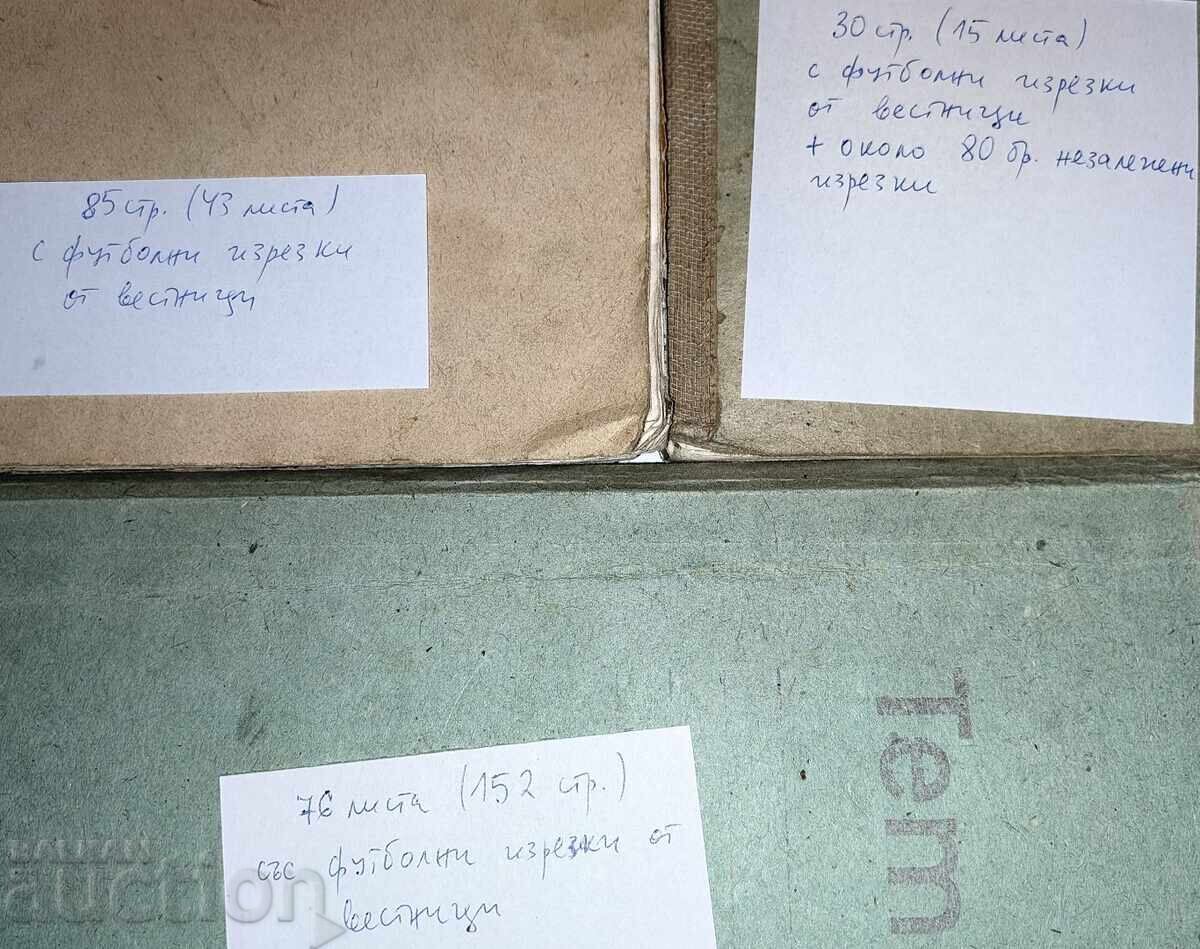 85 стр. (43 листа)
с футболни изрезки
от вестници
30 стр. (15 листа)
с футболни изрезки
от вестници
+ около 80 бр. незалепени
изрезки
Тет
76 листа (152 стр.)
със футболни изрезки от
вестници
BALKAN
auction